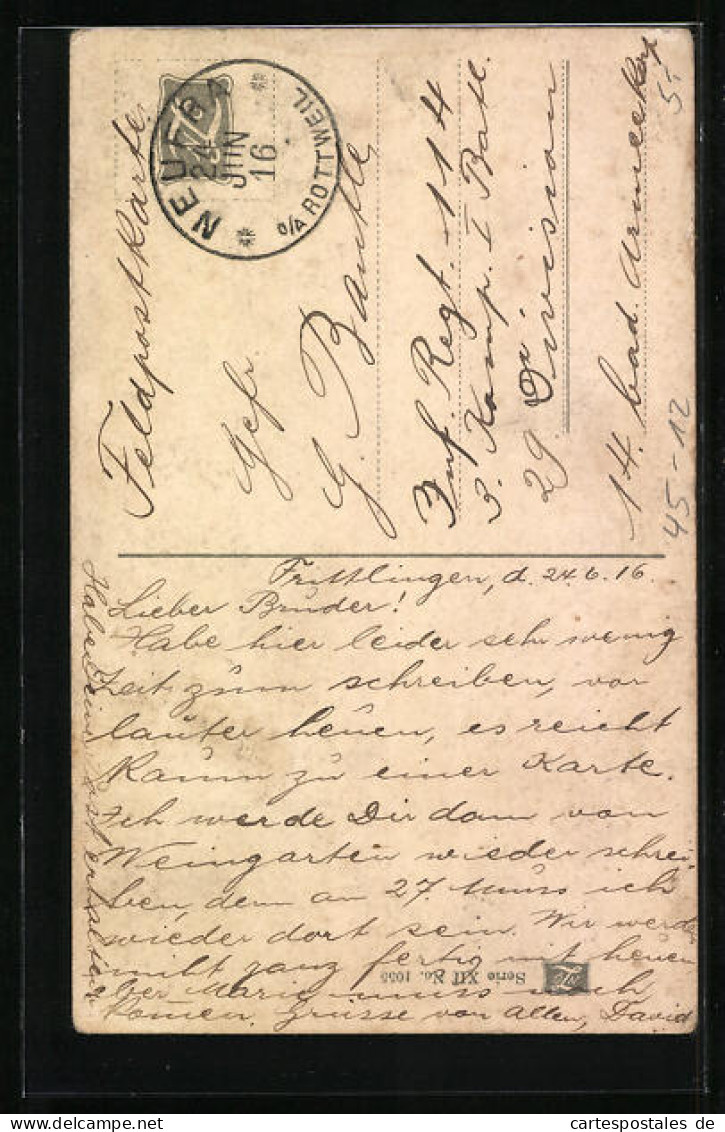 Feldpostkarte.
NEUFRA
24 JUN 16
O/A ROTTWEIL
Gefr
G. Bantle
Inf. Regt. 114
3. Komp. I Batl.
29. Division
14. bad. Armeekorp
5-
45-12
Frittlingen, d. 24.6.16.
Lieber Bruder!
Habe hier leider sehr wenig
Zeit zum schreiben, vor
lauter heuen, es reicht
kaum zu einer Karte.
Ich werde Dir dann von
Weingarten wieder schrei-
ben, denn am 27. muss ich
wieder dort sein. Wir werden
ganz fertig mit heuen
aber Marie muss noch
kommen. Grüsse von Allen, David
Haben deine Post erhalten
Serie XII No. 1055
cartespostales de